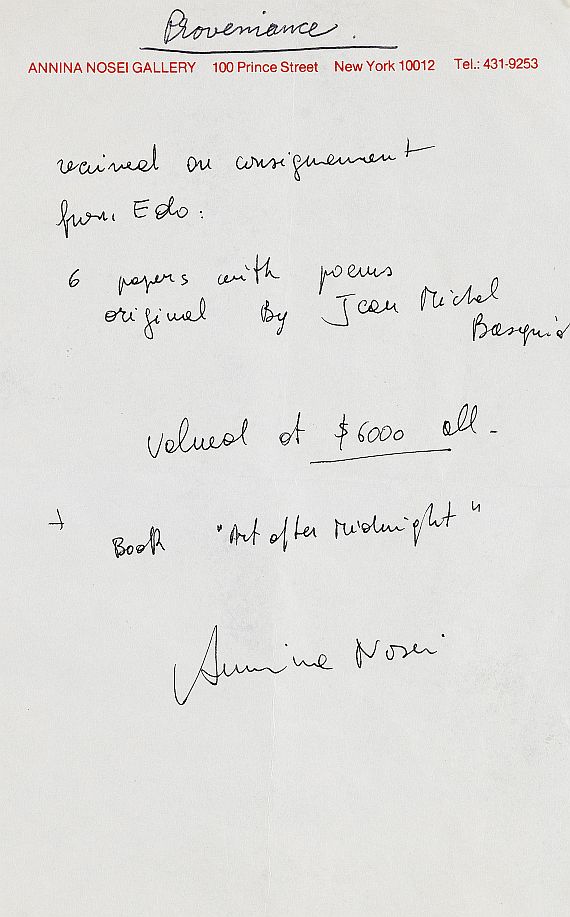 Proveniance.
ANNINA NOSEI GALLERY 100 Prince Street New York 10012 Tel.: 431-9253
received on consignement
from Edo:
6 papers with poems
original By Jean Michel
Basquia
Valued at $6000 all -
+
Book "Art after Midnight"
Annina Nosei